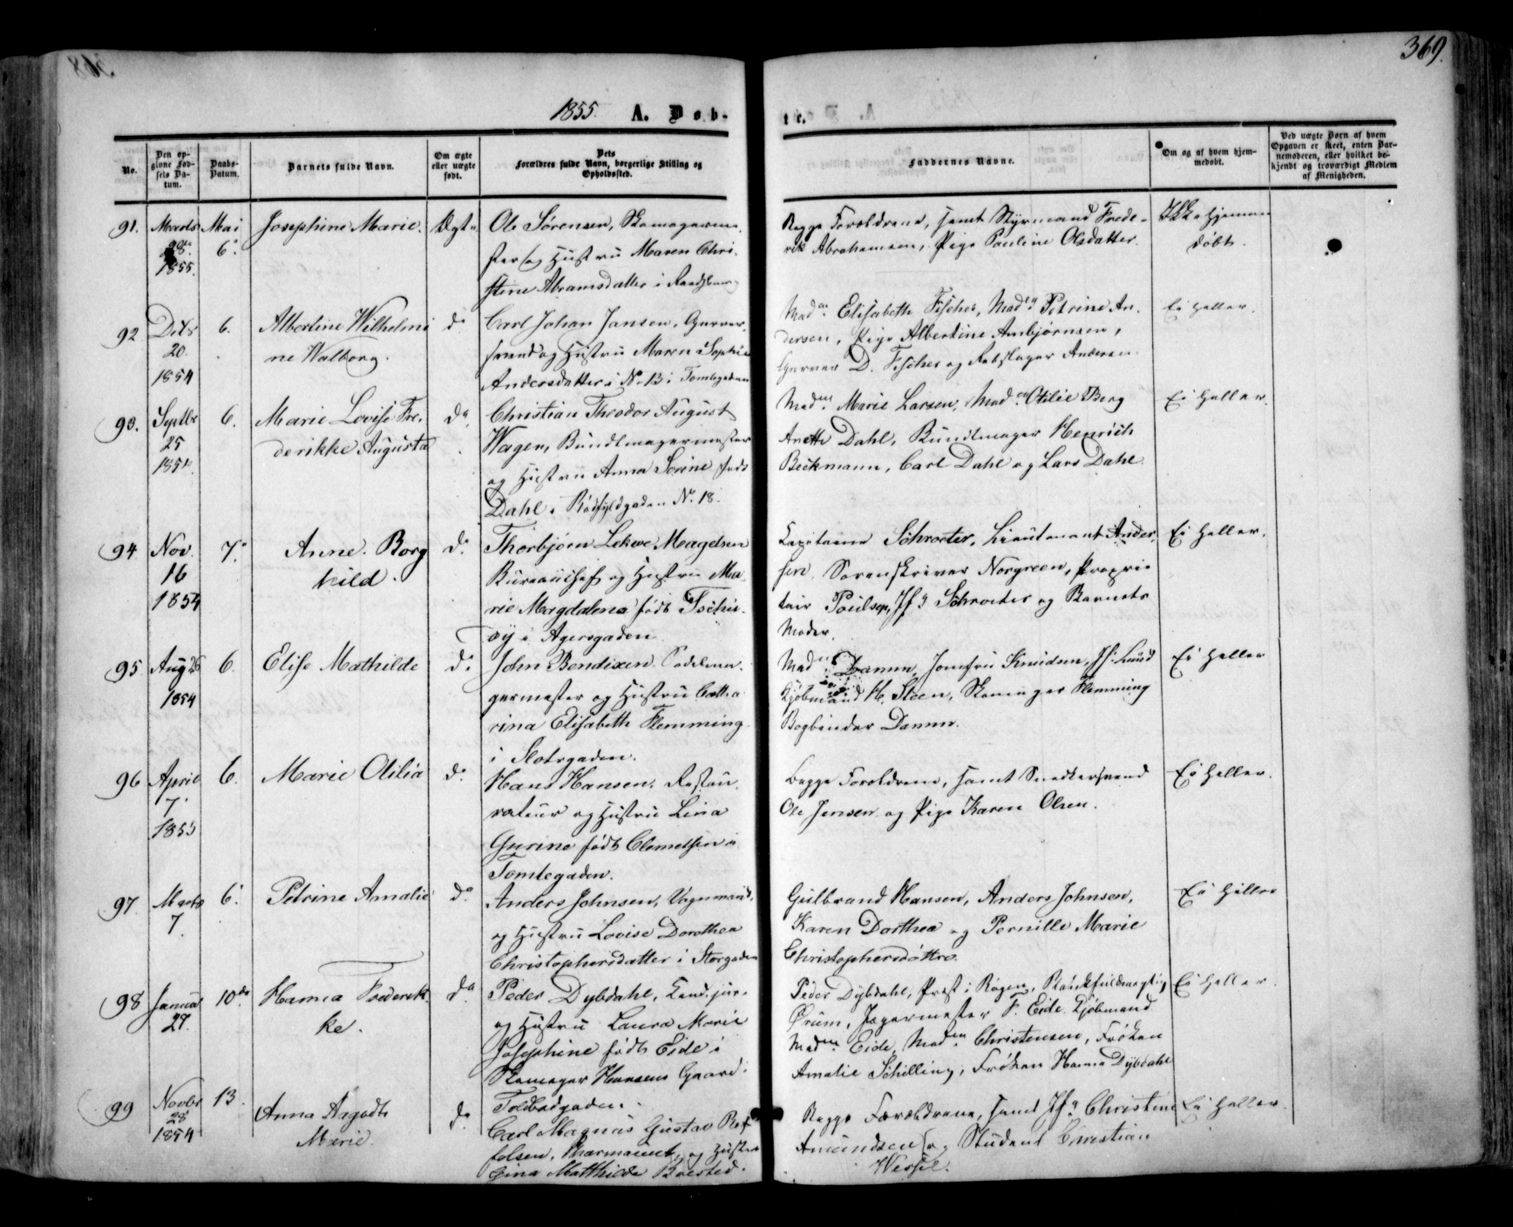 369.
1855. A. Døb-
te.
No.
Den op-
givne Fød-
sels Da-
tum.
Daabs-
Datum.
Barnets fulde Navn.
Om ægte
eller uægte
født.
Dets
Forældres fulde Navn, borgerlige Stilling og
Opholdssted.
Faddernes Navne.
Om og af hvem hjem-
medøbt.
Ved uægte Børn af hvem
Opgaven er skeet, enten Bar-
nemoderen, eller hvilket be-
kjendt og troværdigt Medlem
af Menigheden.
91. Marts
1855.
Mai
6.
Josephine Marie.
Ægte
Ole Sørensen, Skomagerme-
ster og Hustru Maren Chri-
stine Abramsdatter i
Begge Forældrene, samt Styrmand Frede-
rik Abrahamsen, Pige Pauline Olsdatter.
Ikke hjemme
døbt.
92 Decbr
20
1854
6.
Albertine Wilhelmi
ne Walborg.
do
Carl Johan Jansen, Garver-
svend og Hustru Maren Sophie
Andersdatter i No 13 i Tomtegaden
Madm Elisabeth Fischer, Madm Petrine An-
dersen, Pige Albertine Arnbjørnsen,
Garver D. Fischer og Rebslager Andersen
Ei heller.
93. Septbr
25
1854.
6.
Marie Lovise Fre-
derikke Augusta
do.
Christian Theodor August
Wagen, Bundtmagermester
og Hustru Anna Serine født
Dahl i Rødfyldgaden No 18.
Madm Marie Larsen, Madm Otilie Berg
Anette Dahl, Bundtmager Henrich
Beckmann, Carl Dahl og Lars Dahl.
Ei heller.
94 Nov.
16
1854
7.
Anne Borg
hild.
do.
Thorbjørn Lekve Magelsen
Bureauchef og Hustru Ma-
rie Magdalena født
i Agersgaden.
Capitaine Schroeter, Lieutenant Ander-
sen, Sorenskriver Norgreen, Proprie-
tair Poulsen, Jfr Schroeter og Barnets
Moder.
Ei heller.
95 Aug 26
1854
6.
Elise Mathilde
do
John Bendixen Sadelma-
germester og Hustru Catha
rina Elisabeth Flemming
i Slotsgaden.
Madm Damm, Jomfru Knudsen, Jfr Lund
Kjøbmand H. Steen, Flemming
Bogbinder Damm.
Ei heller
96 April
7.
1855
6.
Marie Otilia
do
Hans Hansen, Restau-
rateur og Hustru Lina
Gurine født Clemetsen i
Tomtegaden.
Begge Forældrene, samt Snedkersvend
Ole Jensen og Pige Karen Olsen.
Ei heller.
97 Marts
7.
6.
Petrine Amalie
do
Anders Johnsen, Vognmand,
og Hustru Lovise Dorothea
Christophersdatter i Storgaden
Gulbrand Hansen, Anders Johnsen,
Karen Dorthea og Pernille Marie
Christophersdøttre.
Ei heller
98 Januar
27.
10de
Hanna Frederik-
ke.
do.
Peder Dybdahl, Cand. jur.
og Hustru Laura Marie
Josephine født Eide i
Skomager Hansens Gaard i
Toldbodgaden.
Peder Dybdahl, Præst i Røgen,
Ørum, Jægermester F. Eide, Kjøbmand
Madm Eide, Madm Christensen, Frøken
Amalie Schilling, Frøken Hanna Dybdahl
Ei heller.
99 Novbr
25
1854
13.
Anna Aagoth
Marie.
do
Carl Magnus Gustav
Pharmaceut, og Hustru
Gina Matthilde
Begge Forældrene, samt Jfr Christine
Amundsen og Student Christian
Wessel.
Ei heller.